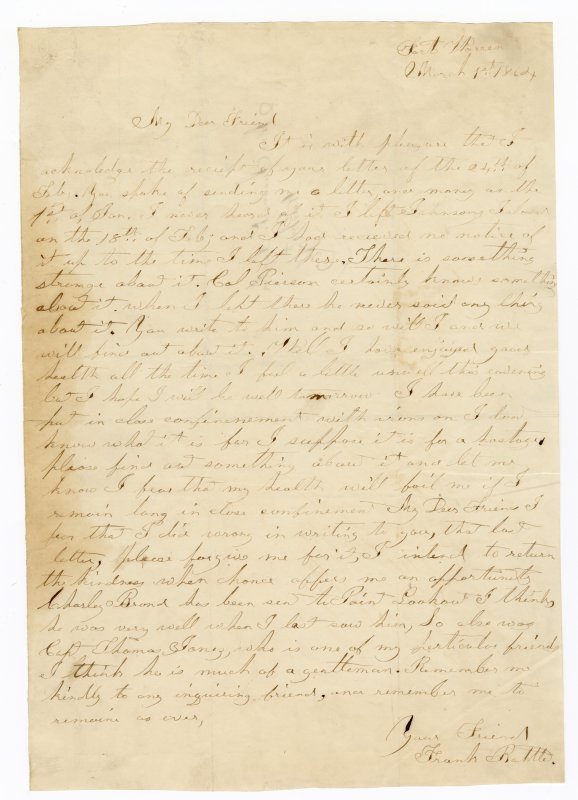 Fort Warren
March 1st 1864
My Dear Friend
It is with pleasure that I
acknowledge the reciept of your letter of the 24th of
Feb. You spoke of sending me a letter and money on the
1st of Jan. I never heard of it I left Johnsons Island
on the 18th of Feb; and I had recieved no notice of
it up to the time I left there. There is something
strange about it. Col Pierson certainly knows something
about it. when I left there he never said any thing
about it. You write to him and so will I and we
will find out about it. Well I have enjoyed good
health all the time I feel a little unwell this evening
but I hope I will be well tomorrow I have been
put in close confinement with irons on I dont
know what it is for I suppose it is for a hostage
please find out something about it and let me
know I fear that my health will fail me if I
remain long in close confinement My Dear Friend I
fear that I did wrong in writing to you, that last
letter, please forgive me for it, I intend to return
the kindness when chance offers me an opportunity
Charley Brand has been sent to Point Lookout I think
he was very well when I last saw him, so also was
Capt Thomas Jones, who is one of my perticular friends
I think he is much of a gentleman. Remember me
kindly to any inquiring friend, and remember me to
remain as ever,
Your Friend
Frank Battle.